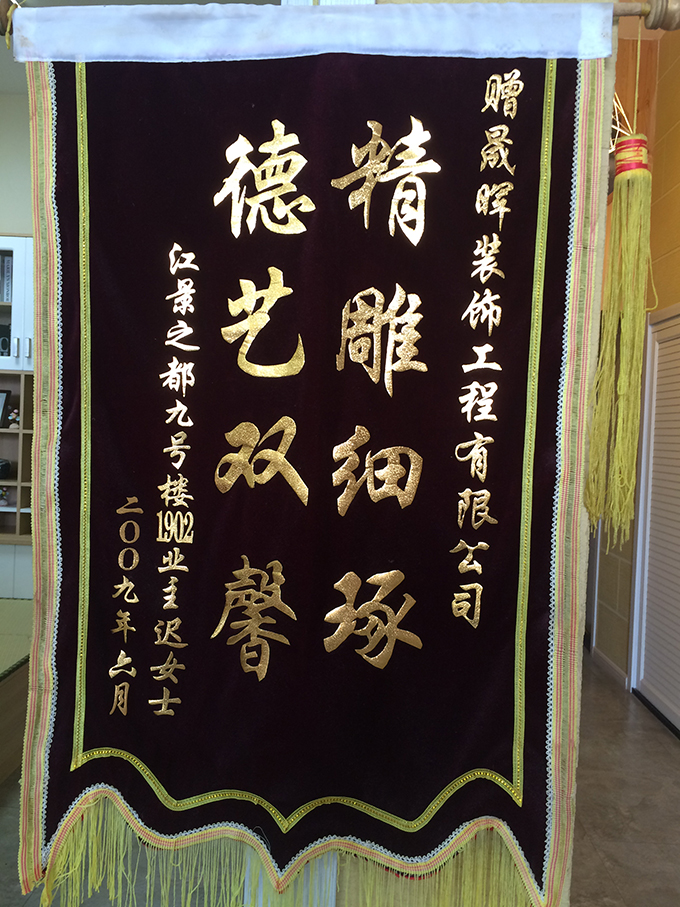 赠晟晖装饰工程有限公司
精雕细琢
德艺双馨
江景之都九号楼1902业主迟女士
二〇〇九年六月